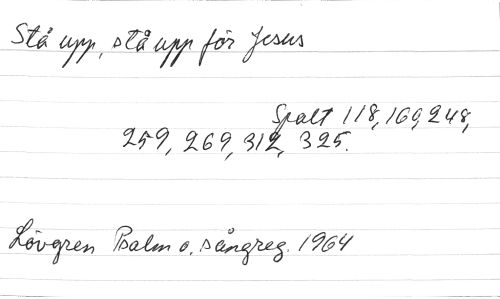 Stå upp, stå upp för Jesus
Spalt 118, 169, 248,
259, 269, 312, 325.
Lövgren Psalm o. sångreg. 1964